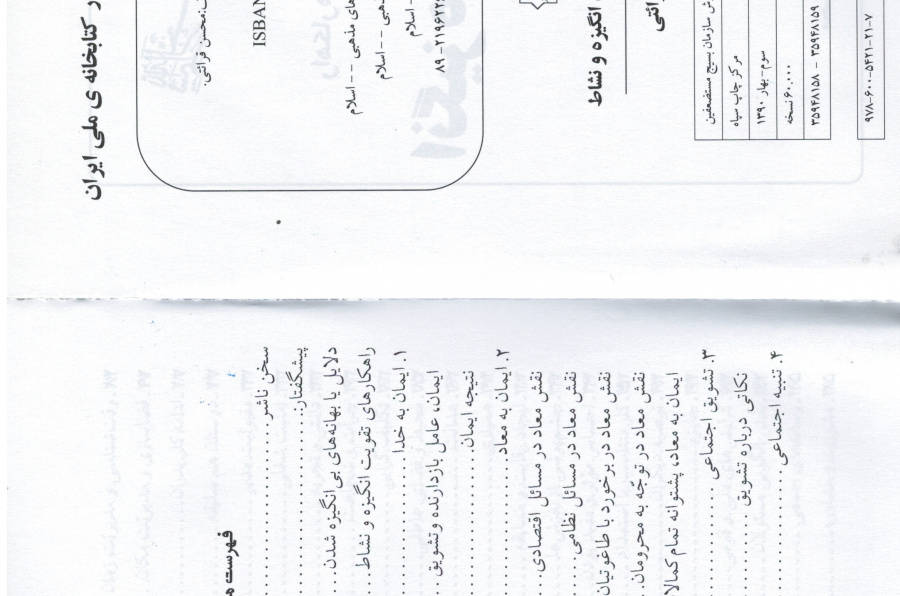 ر کتابخانه ی ملی ایران
محسن قرائتی.
ISBAN
های مذهبی -- اسلام
-- اسلام
- اسلام
انگیزه و نشاط
سازمان بسیج مستضعفین
مرکز چاپ سپاه
سوم - بهار ۱۳۹۰
۶۰.۰۰۰ نسخه
۳۵۹۴۸۱۵۸ – ۳۵۹۴۸۱۵۹
۹۷۸-۶۰۰-۵۴۲۱-۲۱-۷
فهرست
سخن ناشر
پیشگفتار
دلایل یا بهانه‌های بی‌انگیزه شدن
راهکارهای تقویت انگیزه و نشاط
۱. ایمان به خدا
ایمان، عامل بازدارنده و تشویق
نتیجه ایمان
۲. ایمان به معاد
نقش معاد در مسائل اقتصادی
نقش معاد در مسائل نظامی
نقش معاد در برخورد با طاغوتیان
نقش معاد در توجّه به محرومان
ایمان به معاد، پشتوانه تمام کمالا
۳. تشویق اجتماعی
نکاتی درباره تشویق
۴. تنبیه اجتماعی